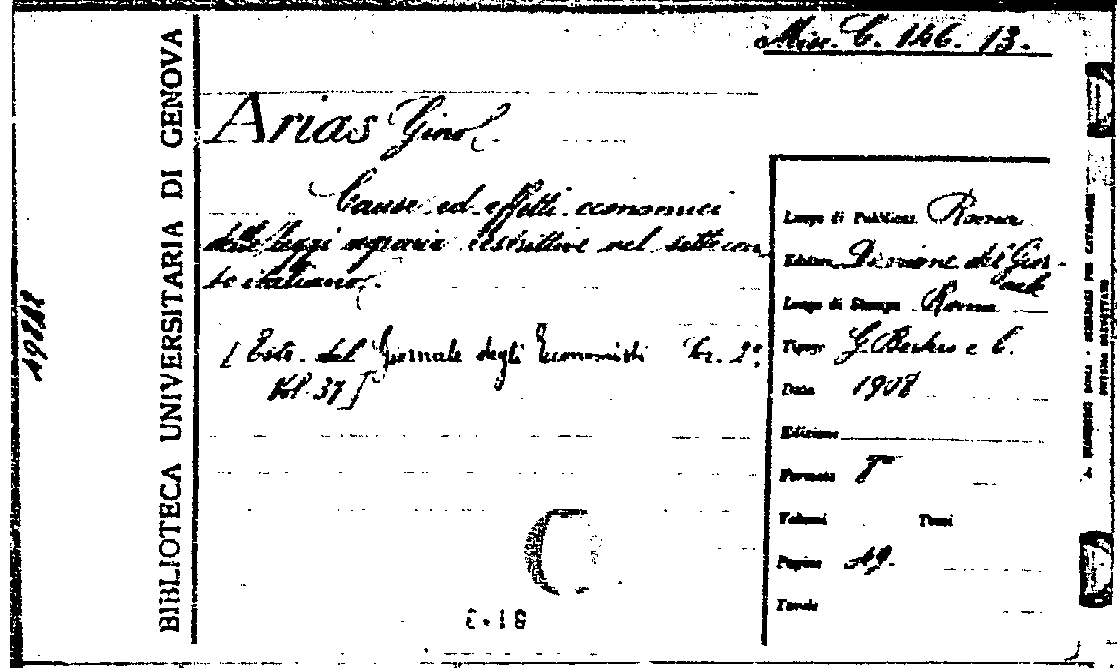 Misc. C. 146. 13.
BIBLIOTECA UNIVERSITARIA DI GENOVA
Arias Gino
Cause ed effetti economici
delle leggi agrarie restrittive nel settecen
to italiano.
[Estr. del Giornale degli Economisti
Vol. 37]
Luogo di Pubblicaz. Roma
Editore Direzione del Gior-
nale
Luogo di Stampa Roma
Tipogr. e C.
Data 1908
Edizione
Formato 8°
Volumi Tomi
Pagine
Tavole